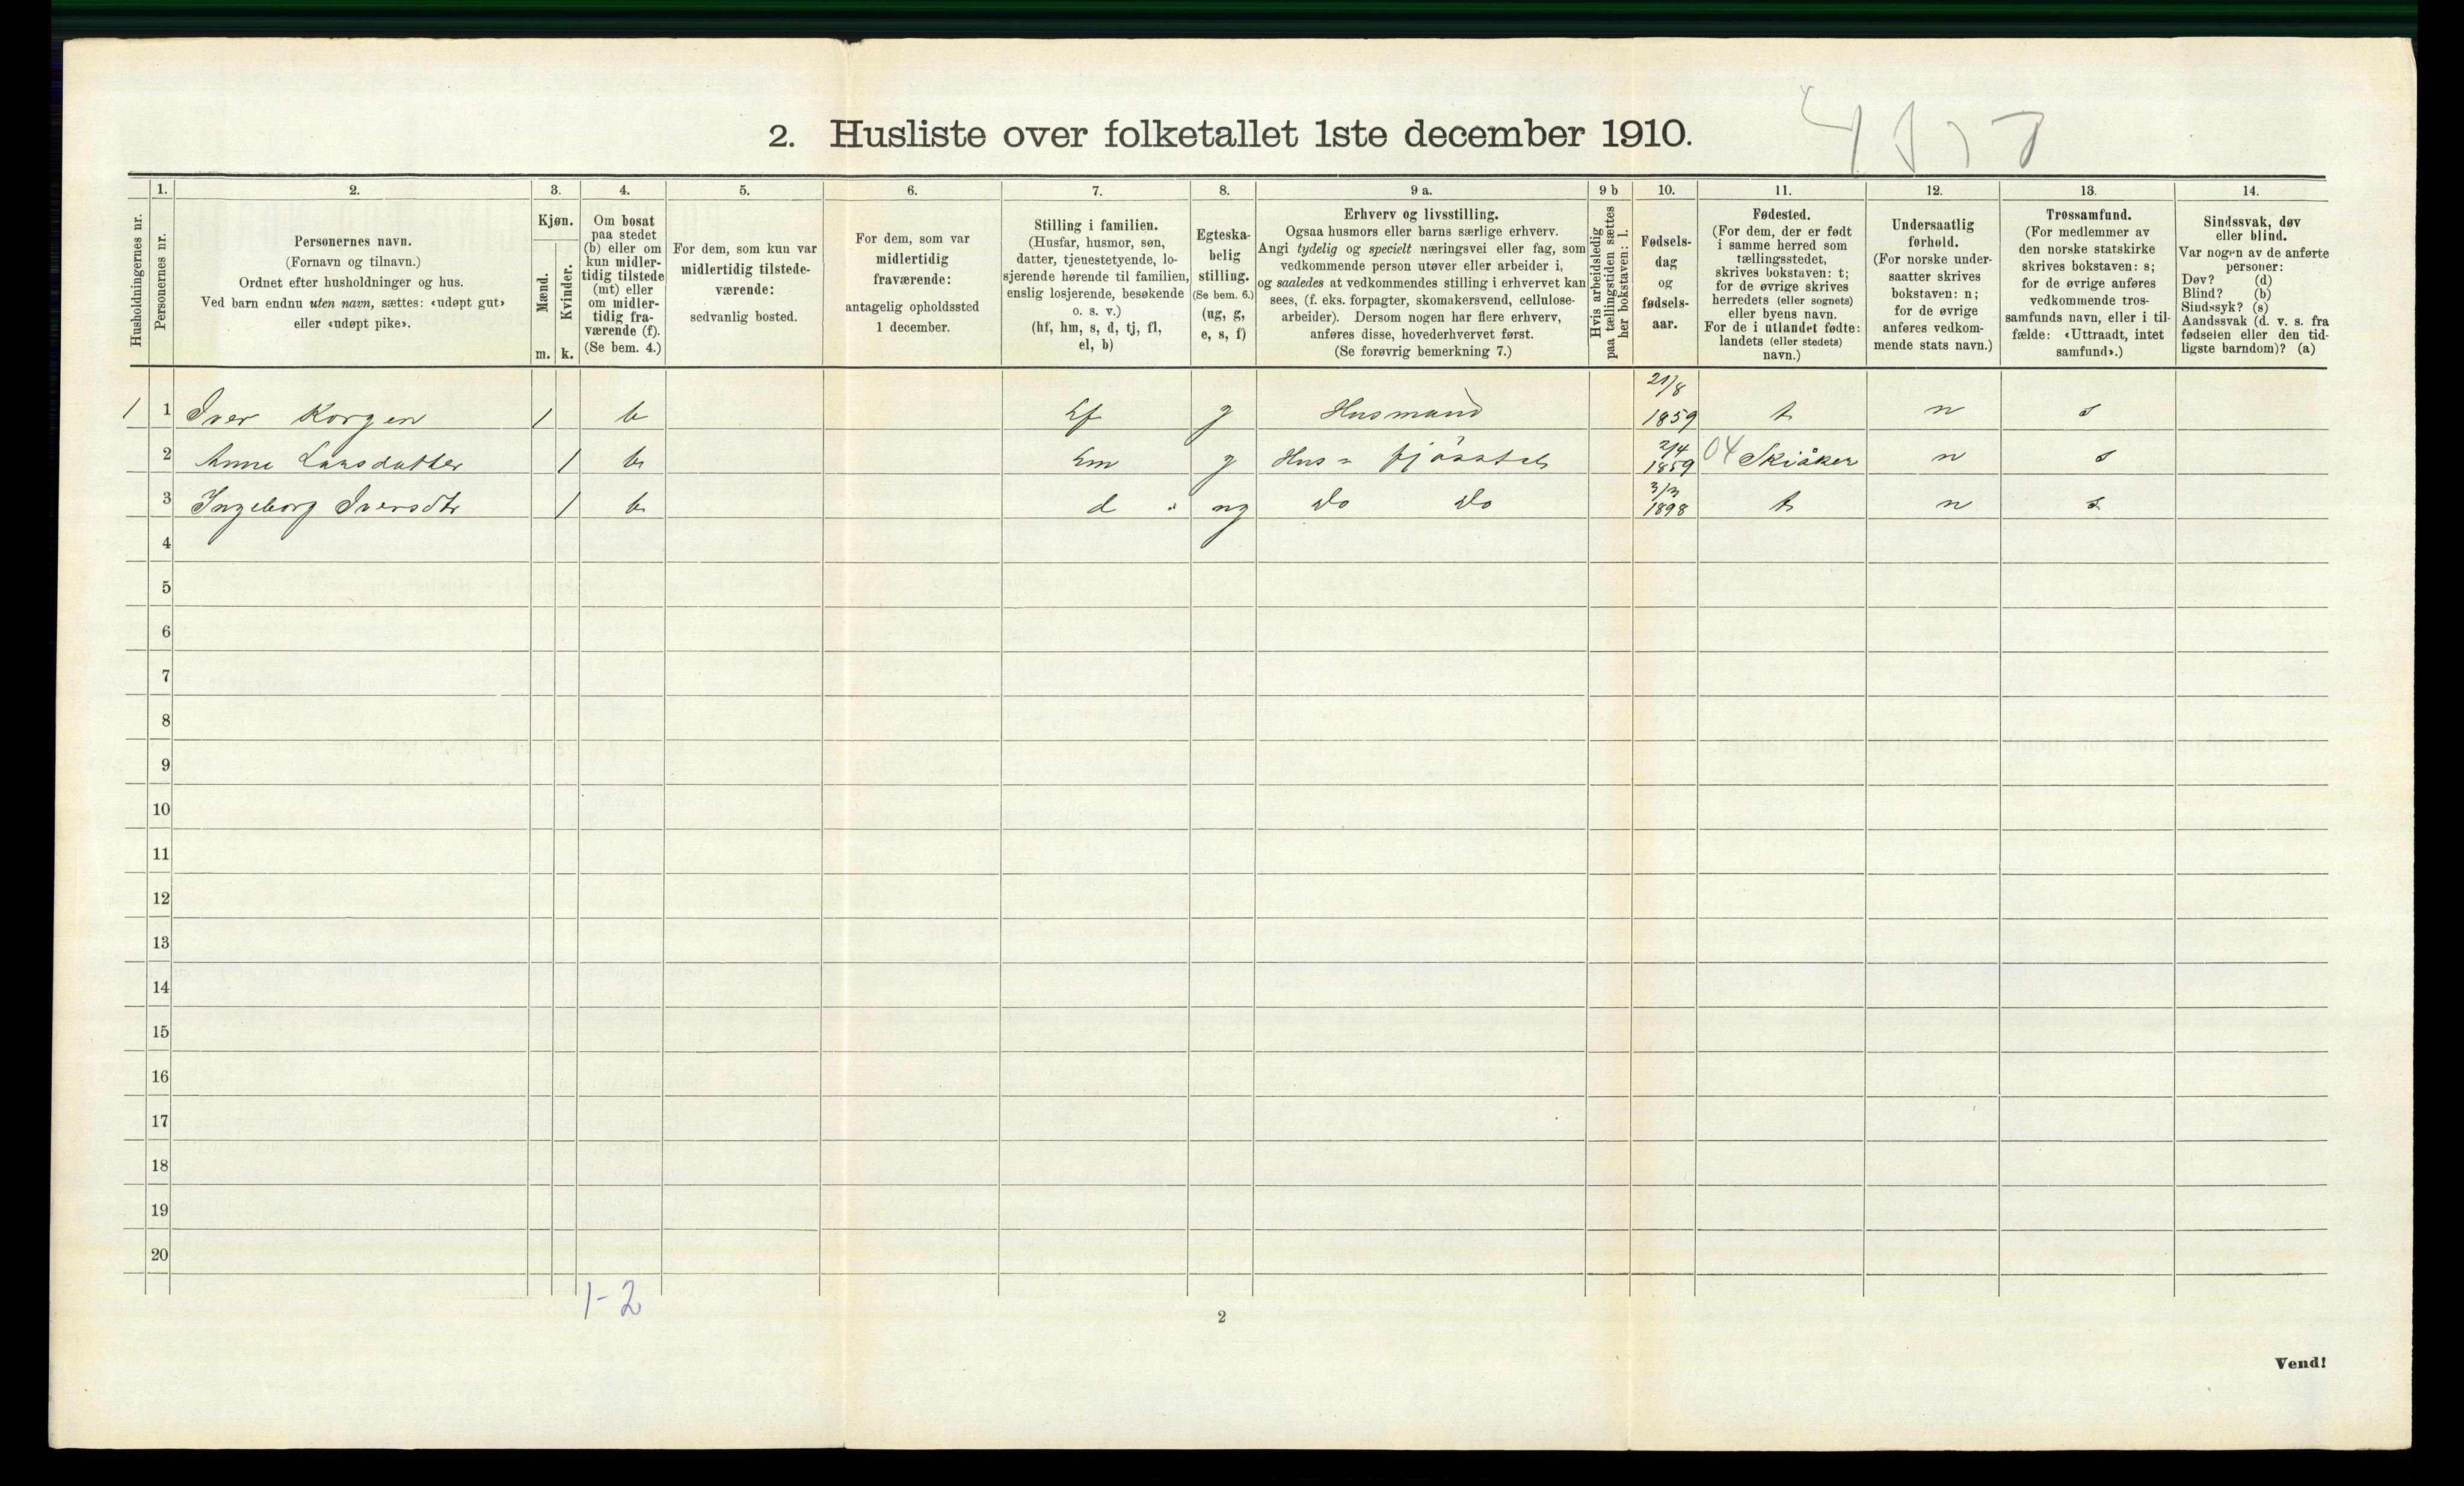 2. Husliste over folketallet 1ste december 1910.
1. 2. 3. 4. 5. 6. 7. 8. 9 a. 9 b 10. 11. 12. 13. 14.
Husholdningernes nr.
Personernes nr.
Personernes navn.
(Fornavn og tilnavn.)
Ordnet efter husholdninger og hus.
Ved barn endnu uten navn, sættes: «udøpt gut»
eller «udøpt pike».
Kjøn.
Mænd.
Kvinder.
m. k.
Om bosat
paa stedet
(b) eller om
kun midler-
tidig tilstede
(mt) eller
om midler-
tidig fra-
værende (f).
(Se bem. 4.)
For dem, som kun var
midlertidig tilstede-
værende:
sedvanlig bosted.
For dem, som var
midlertidig
fraværende:
antagelig opholdssted
1 december.
Stilling i familien.
(Husfar, husmor, søn,
datter, tjenestetyende, lo-
sjerende hørende til familien,
enslig losjerende, besøkende
o. s. v.)
(hf, hm, s, d, tj, fl,
el, b)
Egteska-
belig
stilling.
(Se bem. 6.)
(ug, g,
e, s, f)
Erhverv og livsstilling.
Ogsaa husmors eller barns særlige erhverv.
Angi tydelig og specielt næringsvei eller fag, som
vedkommende person utøver eller arbeider i,
og saaledes at vedkommendes stilling i erhvervet kan
sees, (f. eks. forpagter, skomakersvend, cellulose-
arbeider). Dersom nogen har flere erhverv,
anføres disse, hovederhvervet først.
(Se forøvrig bemerkning 7.)
Hvis arbeidsledig
paa tællingstiden sættes
her bokstaven: l.
Fødsels-
dag
og
fødsels-
aar.
Fødested.
(For dem, der er født
i samme herred som
tællingsstedet,
skrives bokstaven: t;
for de øvrige skrives
herredets (eller sognets)
eller byens navn.
For de i utlandet fødte:
landets (eller stedets)
navn.)
Undersaatlig
forhold.
(For norske under-
saatter skrives
bokstaven: n;
for de øvrige
anføres vedkom-
mende stats navn.)
Trossamfund.
(For medlemmer av
den norske statskirke
skrives bokstaven: s;
for de øvrige anføres
vedkommende tros-
samfunds navn, eller i til-
fælde: «Uttraadt, intet
samfund».)
Sindssvak, døv
eller blind.
Var nogen av de anførte
personer:
Døv? (d)
Blind? (b)
Sindssyk? (s)
Aandssvak (d. v. s. fra
fødselen eller den tid-
ligste barndom)? (a)
1 1 Iver Korgen 1 b hf g Husmand 21/8 1859 t n s
2 Anne Larsdatter 1 b hm g Hus = fjøsstel 2/4 1859 04 Skiåker n s
3 Ingeborg Iversdtr 1 b d " ug Do Do 3/3 1898 t n s
4
5
6
7
8
9
10
11
12
13
14
15
16
17
18
19
20
1-2
2
Vend!